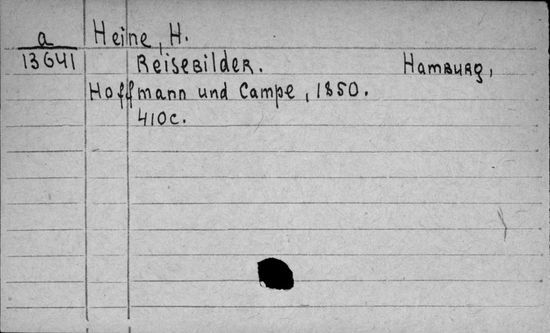 a Heine, H.
13641 Reisebilder. Hamburg,
Hoffmann und Campe, 1850.
410c.